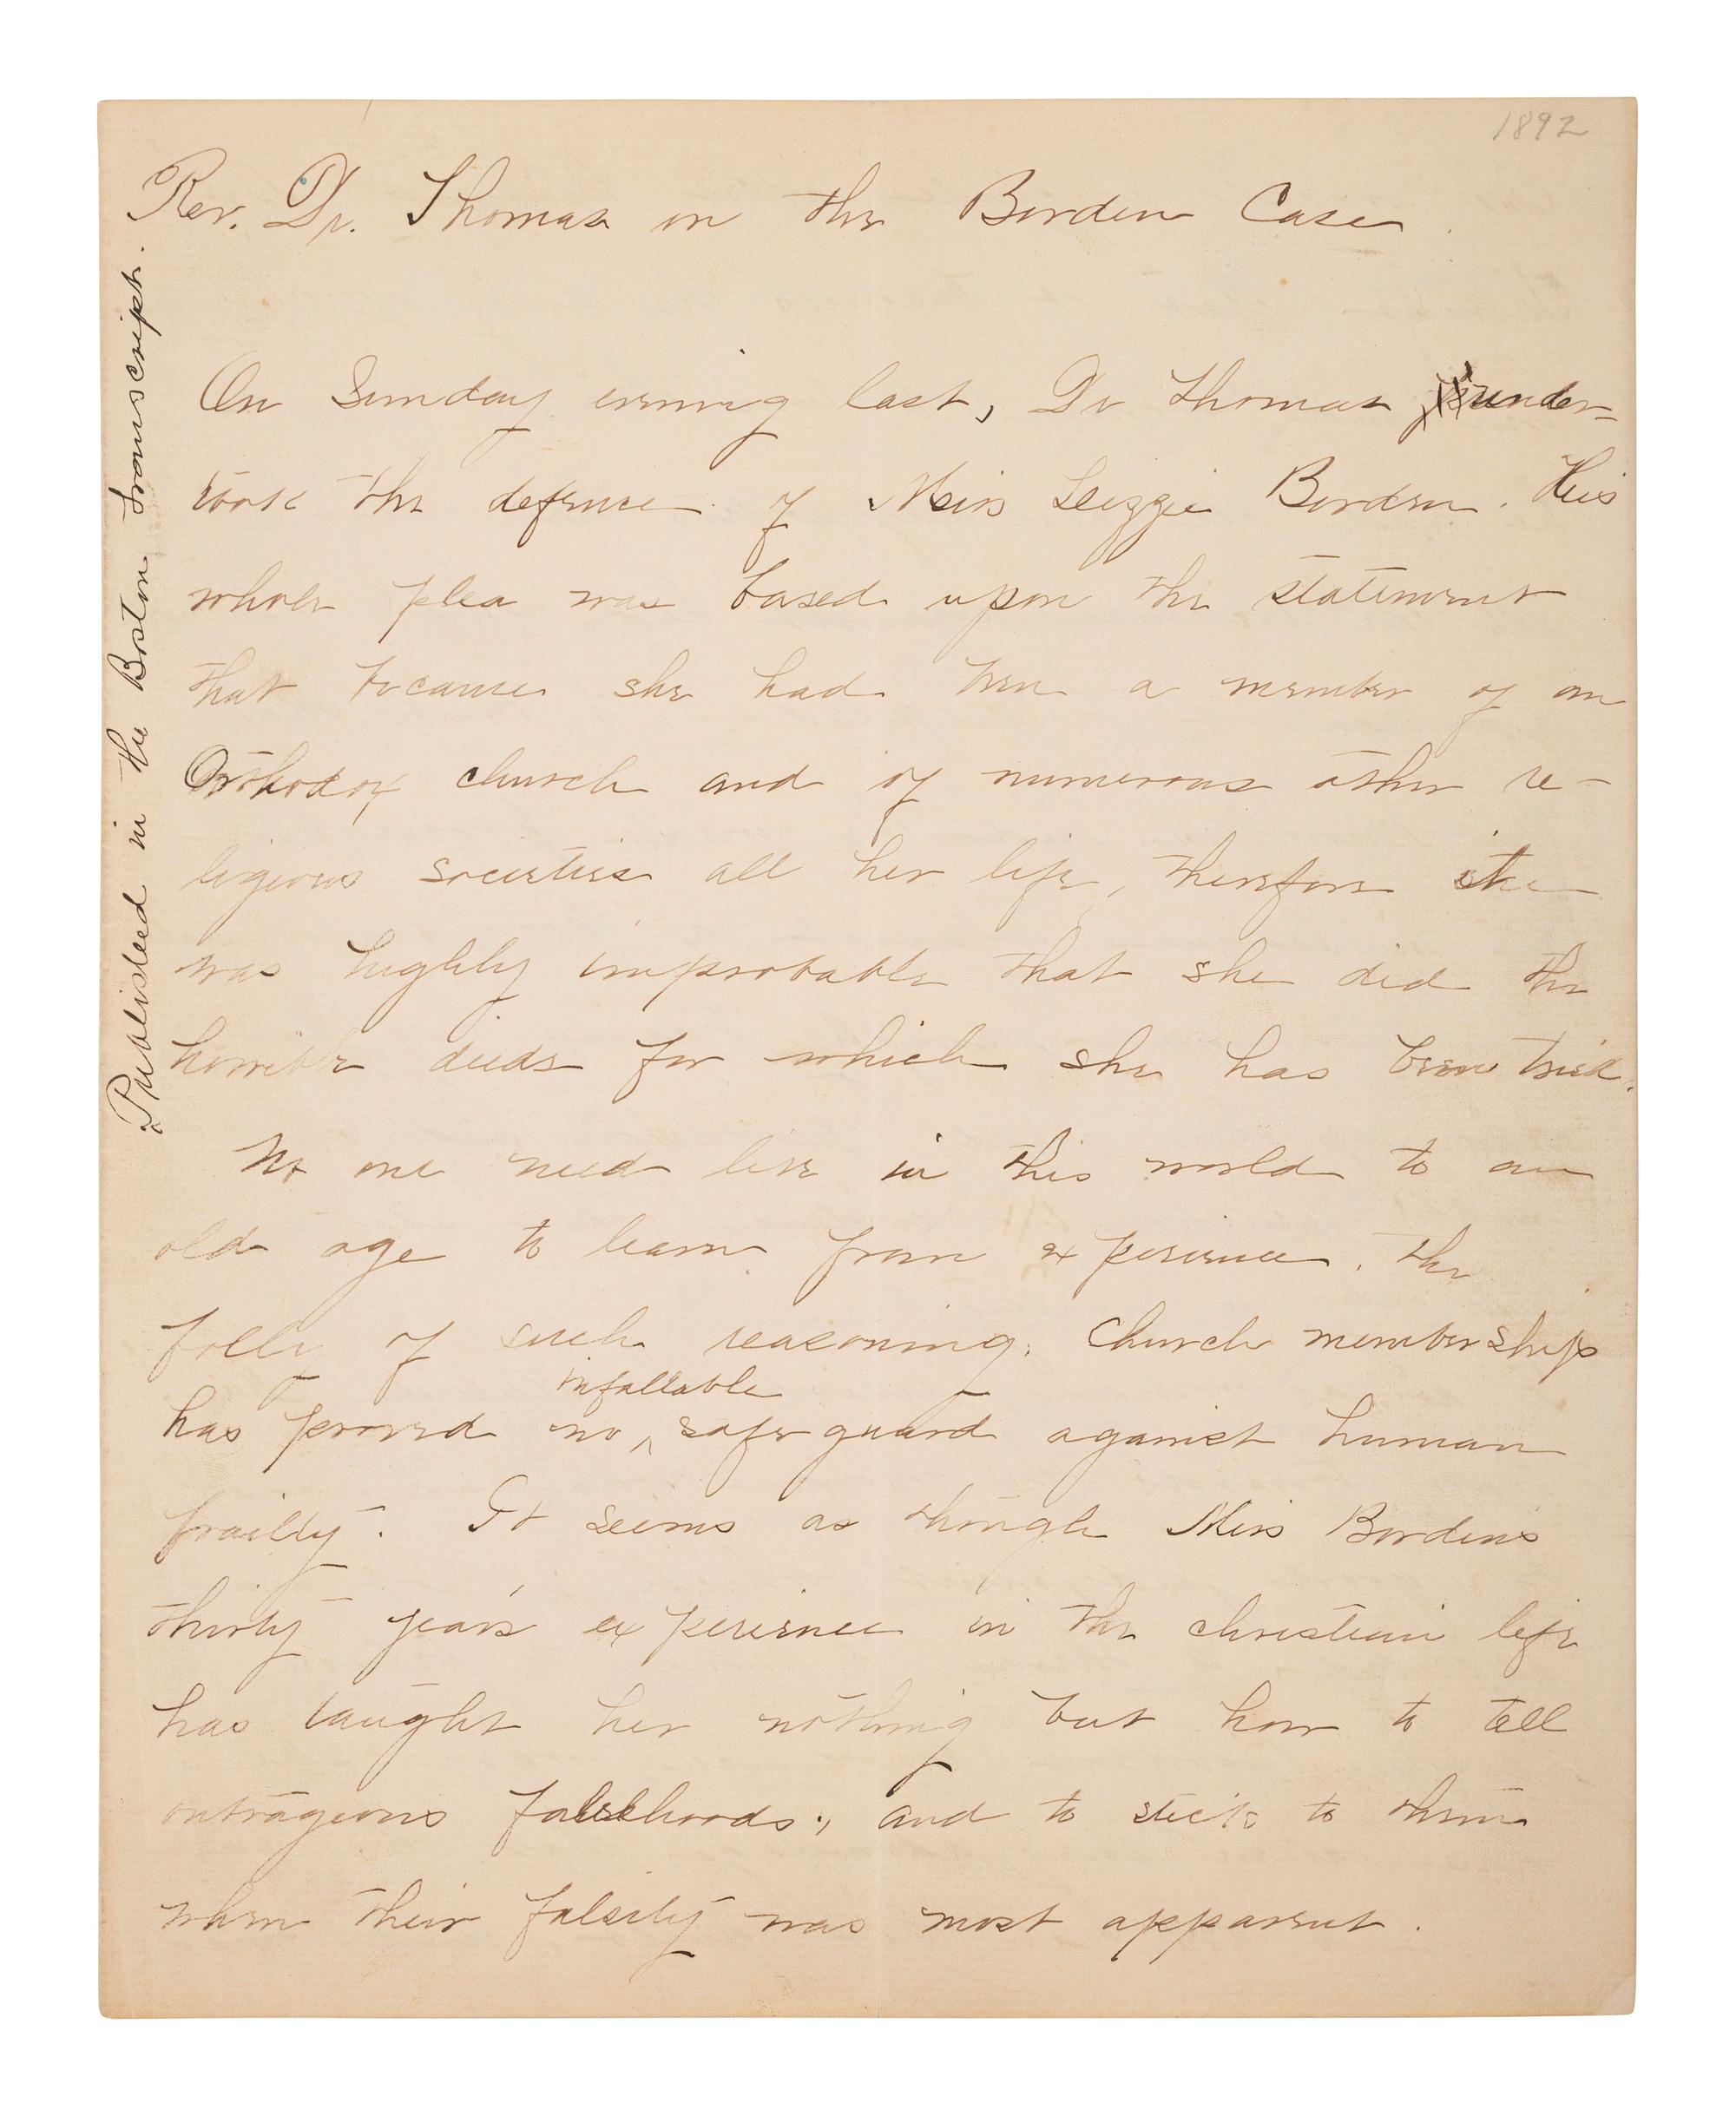 1892
Rev. Dr. Thomas on the Borden Case.
On Sunday evening last, Dr Thomas under-
took the defence of Miss Lizzie Borden. His
whole plea was based upon the statement
that because she had been a member of an
Orthodox church and of numerous other re-
ligious societies all her life, therefore it
was highly improbable that she did the
horrible deeds for which she has been tried.
No one need live in this world to an
old age to learn from experience, the
folly of such reasoning. Church memberships
infallable
has proved no ‸ safe guard against human
frailty. It seems as though Miss Borden's
thirty year's experience in the christian life
has taught her nothing but how to tell
outrageous falsehoods, and to stick to them
when their falsity was most apparent.
Published in the Boston Transcript.